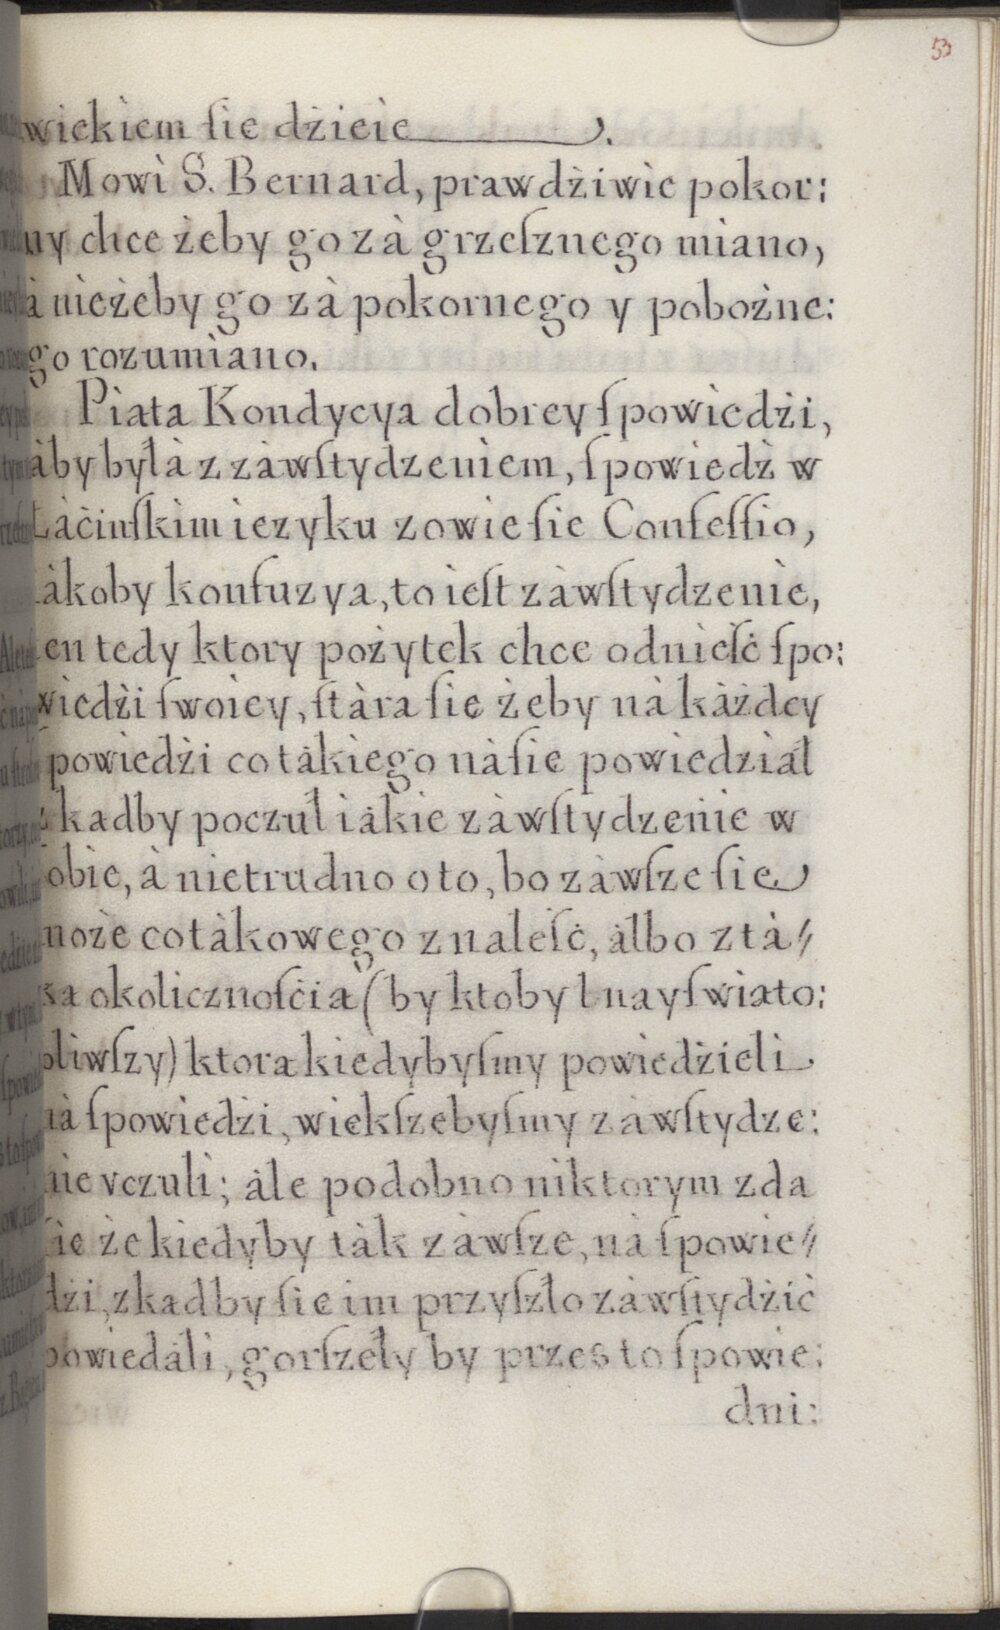 53
wiekiem ſie dżieie.
Mowi S. Bernard, prawdżiwie pokor:
ny chce żeby go zà grzeſznego miano,
à nieżeby go zà pokornego y pobożne:
go rozumiano.
Piąta Kondycya dobrey ſpowiedżi,
àby byłà z zàwſtydzeniem, ſpowiedż w
Łàćinſkim iezyku zowie ſie Confeſſio,
iàkoby konfuzya, to ieſt zàwſtydzenie,
en tedy ktory pożytek chce odnieść ſpo:
wiedżi ſwoiey, ſtàra ſie żeby nà kàżdey
ſpowiedżi co tàkiego nà ſie powiedział
zkądby poczuł iàkie zàwſtydzenie w
ſobie, à nietrudno o to, bo zàwſze ſie
może co tàkowego znaleść, àlbo z tà//
ką okolicznoſćią (by kto był nayſwiąto:
bliwſzy) ktorą kiedybyſmy powiedżieli
nà ſpowiedżi, wiekſzebyſmy zàwſtydze:
nie vczuli; àle podobno niktorym zda
ſie że kiedyby tàk zàwſze, nà ſpowie//
dżi, zkądby ſie im przyſzło zàwſtydżić
powiedàli, gorſzeły by przes to ſpowie:
dni: